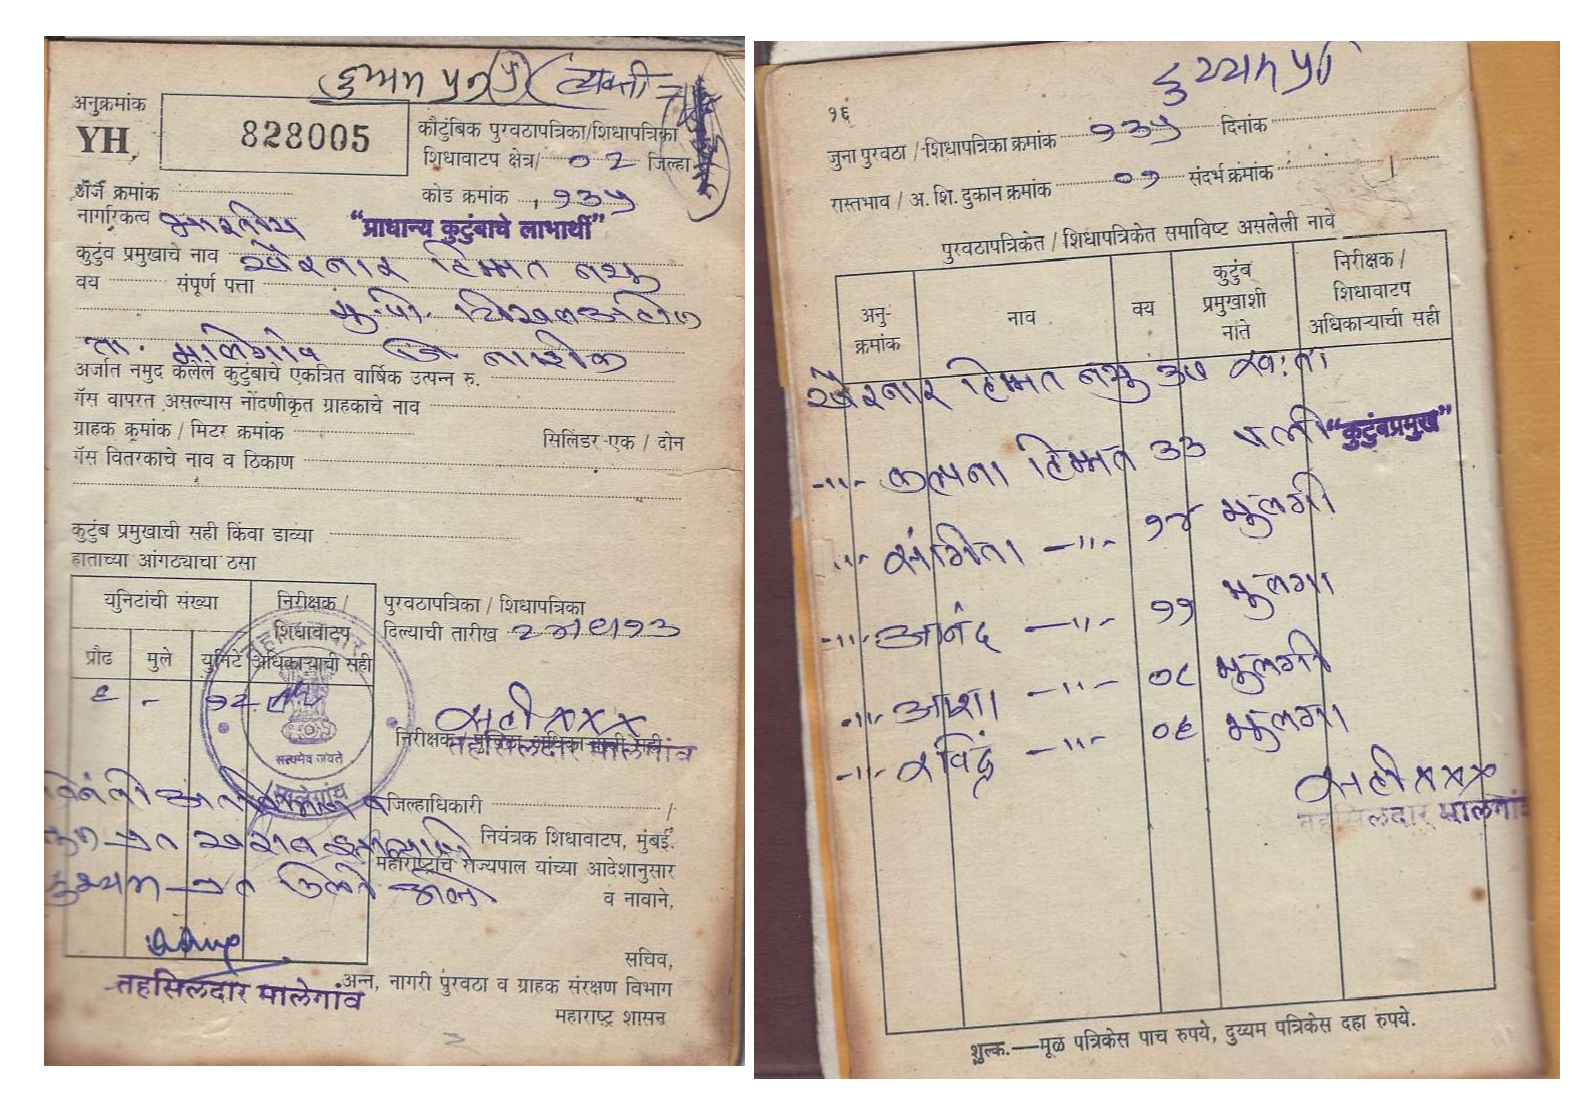 दुय्यम प्रत
अनुक्रमांक
YH
828005
कौटुंबिक पुरवठापत्रिका/शिधापत्रिका
शिधावाटप क्षेत्र/ ०२ जिल्हा
अर्ज क्रमांक
कोड क्रमांक १३५
नागरिकत्व भारतीय "प्राधान्य कुटुंबाचे लाभार्थी"
कुटुंब प्रमुखाचे नाव खैरनार हिम्मत नथु
वय संपूर्ण पत्ता
मु.पो.
ता. मालेगांव जि नाशीक
अर्जात नमुद केलेले कुटुंबाचे एकत्रित वार्षिक उत्पन्न रु.
गॅस वापरत असल्यास नोंदणीकृत ग्राहकाचे नाव
ग्राहक क्रमांक / मिटर क्रमांक सिलिंडर-एक / दोन
गॅस वितरकाचे नाव व ठिकाण
कुटुंब प्रमुखाची सही किंवा डाव्या
हाताच्या आंगठ्याचा ठसा
युनिटांची संख्या
निरीक्षक /
शिधावाटप
अधिकाऱ्याची सही
प्रौढ मुले युनिटे
६ - १२
पुरवठापत्रिका / शिधापत्रिका
दिल्याची तारीख
सही xxx
तहसिलदार मालेगांव
सत्यमेव जयते
मालेगांव
जिल्हाधिकारी /
नियंत्रक शिधावाटप, मुंबई.
महाराष्ट्राचे राज्यपाल यांच्या आदेशानुसार
व नावाने,
सचिव,
तहसिलदार मालेगांव
अन्न, नागरी पुरवठा व ग्राहक संरक्षण विभाग
महाराष्ट्र शासन
दुय्यम प्रत
१६
जुना पुरवठा /-शिधापत्रिका क्रमांक १३५ दिनांक
रास्तभाव / अ. शि. दुकान क्रमांक ०१ संदर्भ क्रमांक
पुरवठापत्रिकेत / शिधापत्रिकेत समाविष्ट असलेली नावे
अनु-
क्रमांक
नाव
वय
कुटुंब
प्रमुखाशी
नाते
निरीक्षक /
शिधावाटप
अधिकाऱ्याची सही
खैरनार हिम्मत नथु ३७ स्वःता
-"- कल्पना हिम्मत ३३ पत्नी "कुटुंबप्रमुख"
-"- संगिता -"- १४ मुलगी
-"- आनंद -"- ११ मुलगा
-"- आशा -"- ०८ मुलगी
-"- रविंद्र -"- ०६ मुलगा
सही xxx
तहसिलदार मालेगांव
शुल्क.—मूळ पत्रिकेस पाच रुपये, दुय्यम पत्रिकेस दहा रुपये.